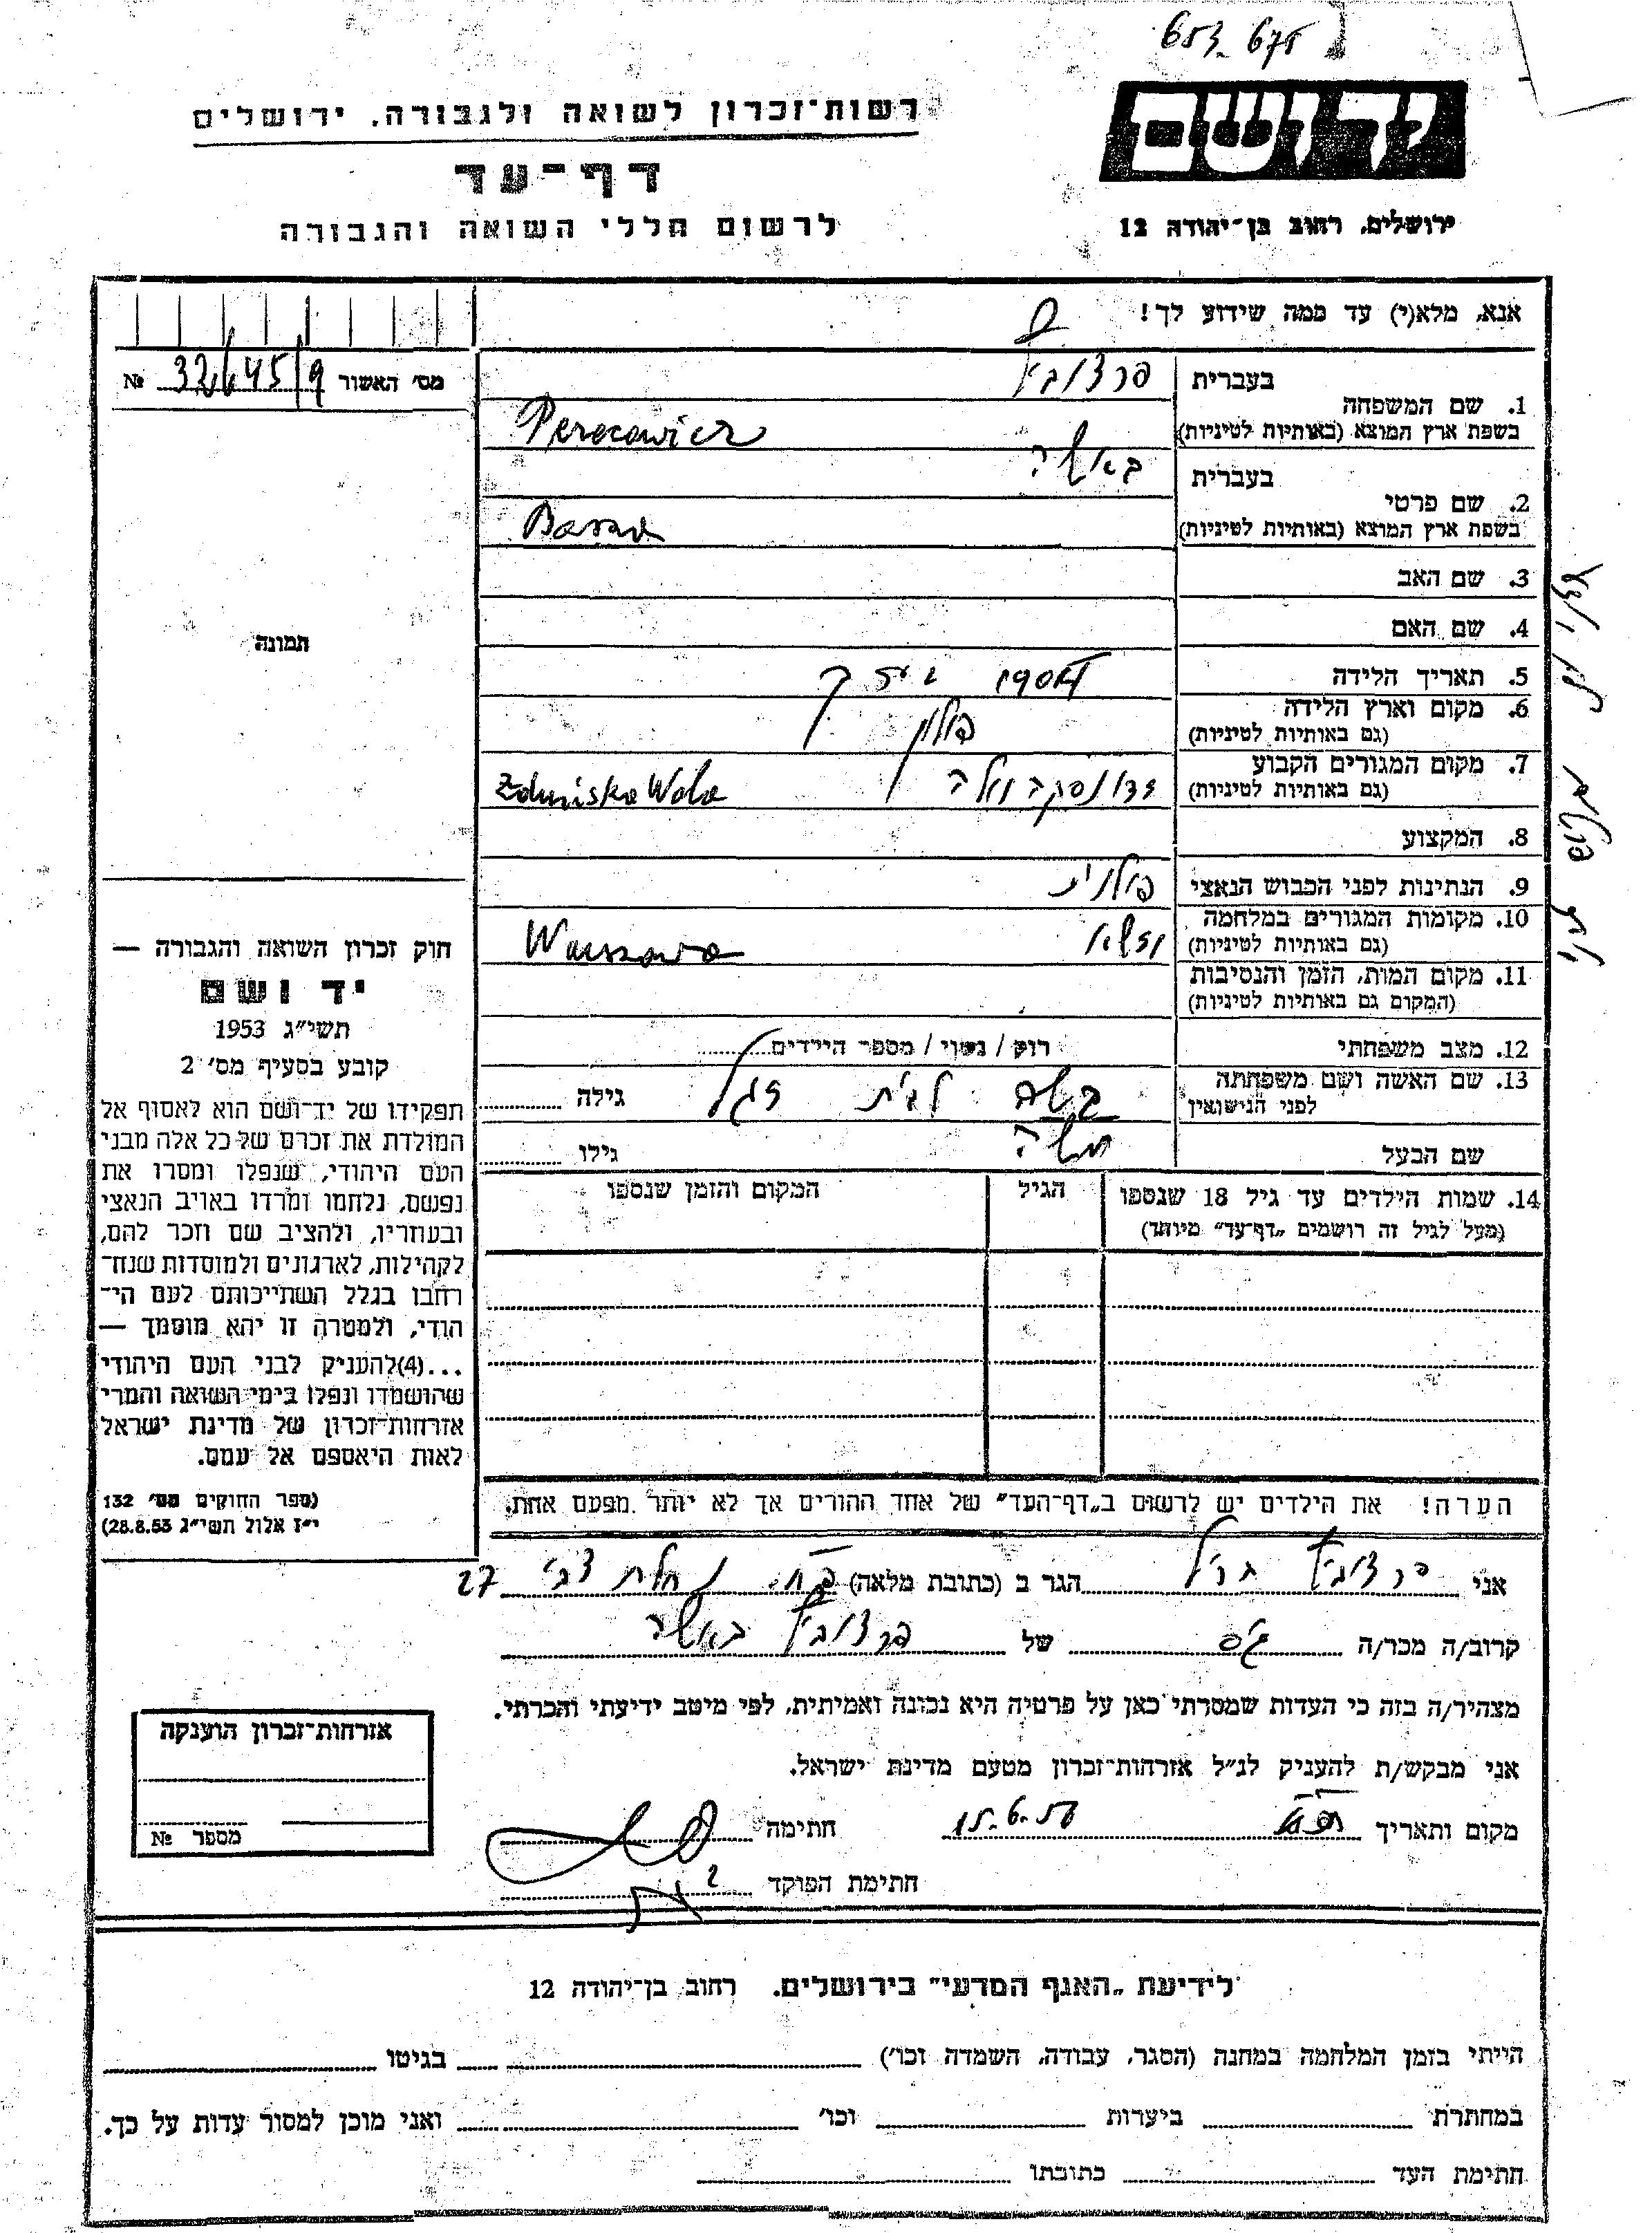 653-675
יד ושם
רשות־זכרון לשואה ולגבורה, ירושלים
דף־עד
ירושלים, רחוב בן־יהודה 12
לרשום חללי השואה והגבורה
אנא, מלא(י) עד כמה שידוע לך!
מס׳ האשור 32/45/9 №
1. שם המשפחה
בעברית
בשפת ארץ המוצא (באותיות לטיניות) Perecowicz
2. שם פרטי
בעברית
בשפת ארץ המוצא (באותיות לטיניות)
3. שם האב
4. שם האם
תמונה
5. תאריך הלידה
6. מקום וארץ הלידה
(גם באותיות לטיניות) פולין
7. מקום המגורים הקבוע
(גם באותיות לטיניות) Zduńska Wola
8. המקצוע
9. הנתינות לפני הכבוש הנאצי פולנית
10. מקומות המגורים במלחמה
(גם באותיות לטיניות) ורשא Warszawa
11. מקום המות, הזמן והנסיבות
(המקום גם באותיות לטיניות)
12. מצב משפחתי רוק / נשוי / מספר הילדים
13. שם האשה ושם משפחתה
לפני הנישואין לבית גילה
שם הבעל משה גילו
14. שמות הילדים עד גיל 18 שנספו
(מעל לגיל זה רושמים „דף־עד״ מיוחד)
הגיל
המקום והזמן שנספו
חוק זכרון השואה והגבורה —
יד ושם
תשי״ג 1953
קובע בסעיף מס׳ 2
תפקידו של יד־ושם הוא לאסוף אל
המולדת את זכרם של כל אלה מבני
העם היהודי, שנפלו ומסרו את
נפשם, נלחמו ומרדו באויב הנאצי
ובעוזריו, ולהציב שם וזכר להם,
לקהילות, לארגונים ולמוסדות שנח־
רחבו בגלל השתייכותם לעם הי־
הודי, ולמטרה זו יהא מוסמך —
...(4)להעניק לבני העם היהודי
שהושמדו ונפלו בימי השואה והמרי
אזרחות־זכרון של מדינת ישראל
לאות היאספם אל עמם.
(ספר החוקים מס׳ 132
י״ז אלול תשי״ג 28.8.53)
הערה! את הילדים יש לרשום ב„דף־העד״ של אחד ההורים אך לא יותר מפעם אחת.
אני הגר ב (כתובת מלאה) נחלת 27
קרוב/ה מכר/ה גיס של
מצהיר/ה בזה כי העדות שמסרתי כאן על פרטיה היא נכונה ואמיתית, לפי מיטב ידיעתי והכרתי.
אני מבקש/ת להעניק לנ״ל אזרחות־זכרון מטעם מדינת ישראל.
מקום ותאריך 15.6.56 חתימה
חתימת הפוקד
אזרחות־זכרון הוענקה
מספר №
לידיעת „האגף המדעי״ בירושלים, רחוב בן־יהודה 12
הייתי בזמן המלחמה במחנה (הסגר, עבודה, השמדה וכו׳) בגיטו
במחתרת ביערות וכו׳ ואני מוכן למסור עדות על כך.
חתימת העד כתובתו